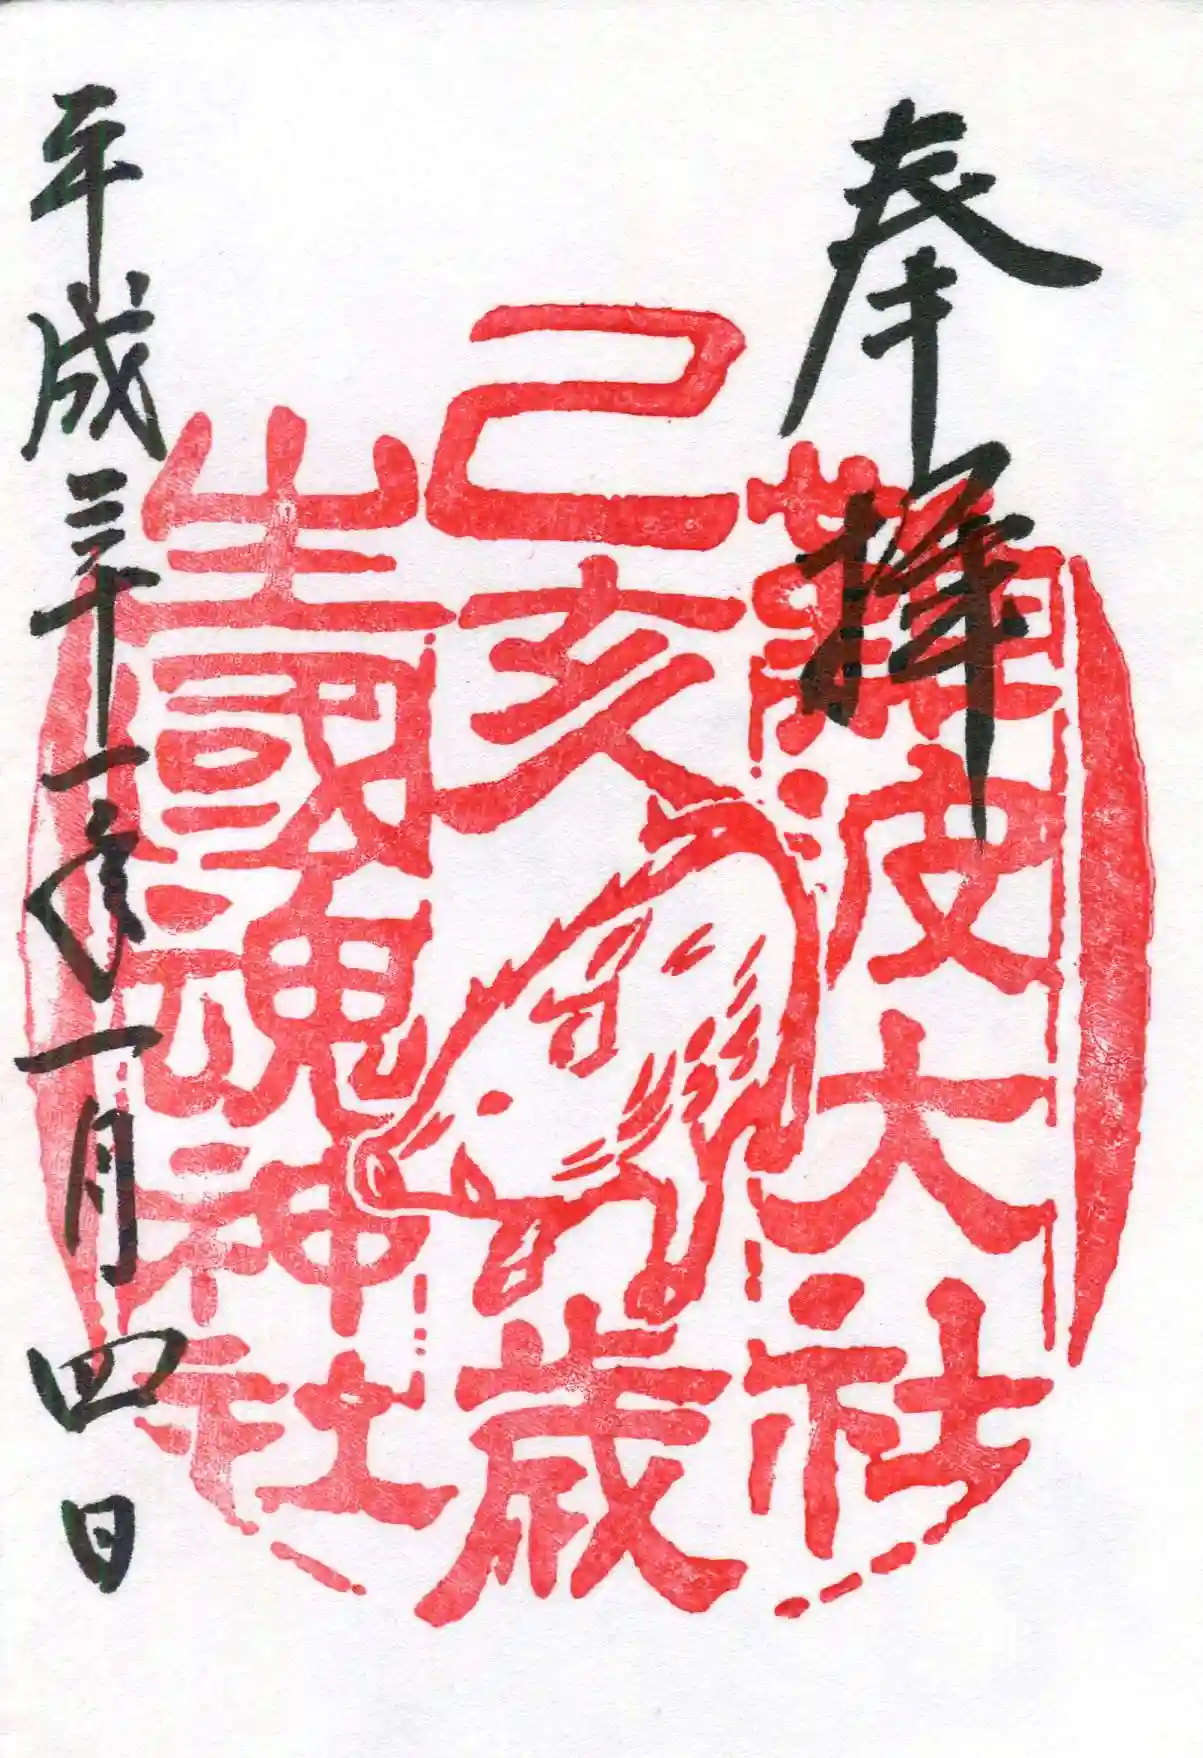 奉拝
難波大社
己亥
歳
生國魂神社
平成三十一年一月四日